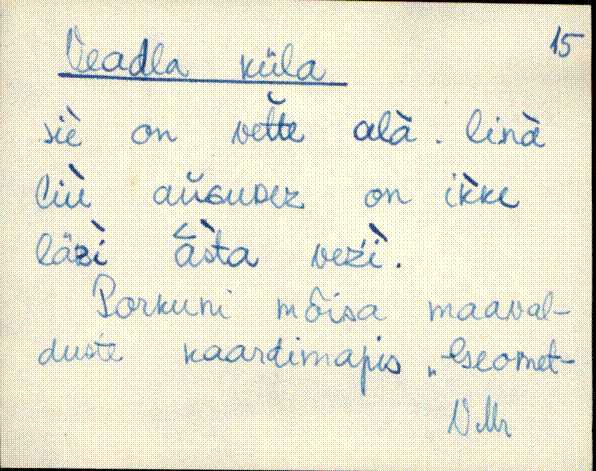 15
Veadla küla
siè on vette alà. linà
liù auGUDEZ on ìkke
läzì àsta vezì.
Porkuni mõisa maaval-
duste kaardimapis „Geomet-